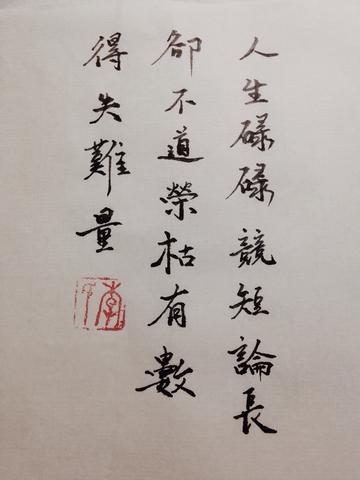 人生碌碌競短論長
卻不道榮枯有數
得失難量